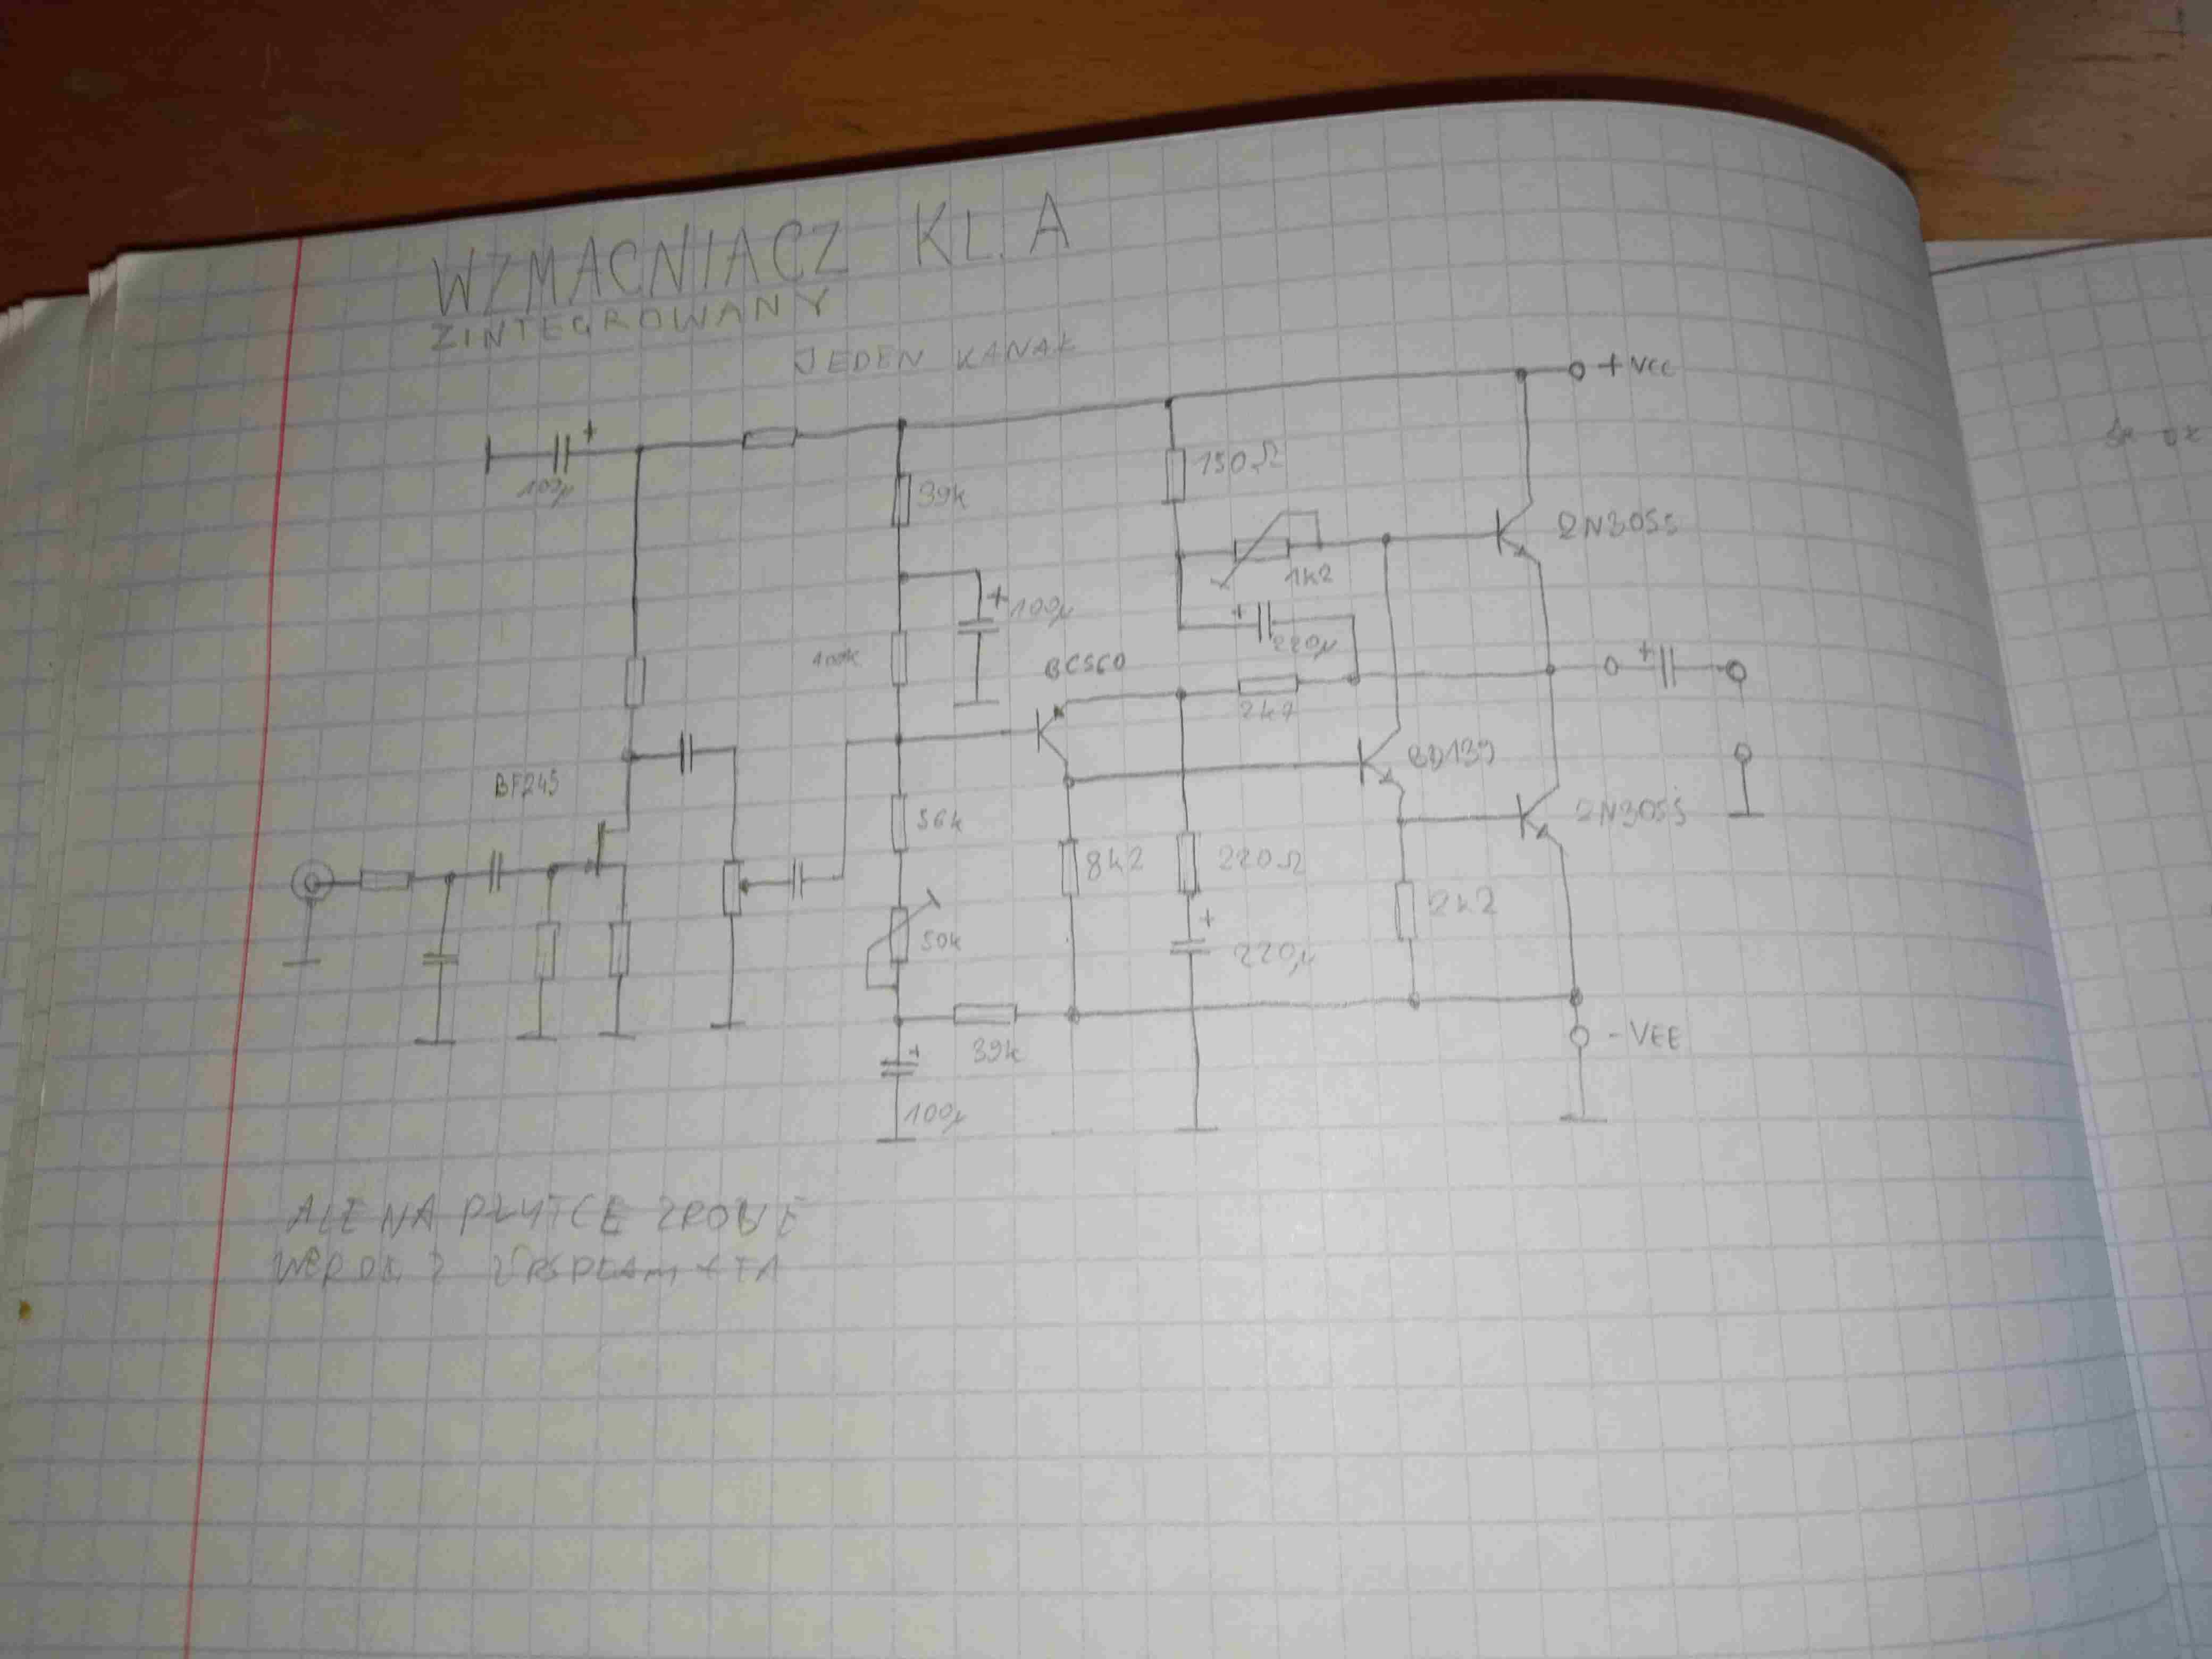 WZMACNIACZ KL. A
ZINTEGROWANY
JEDEN KANAŁ
+ VCC
+
100µ
39k
150Ω
2N3055
1k2
+
100µ
+
220µ
100k
BC560
+
2k7
BD139
BF245
56k
2N3055
8k2
220Ω
2k2
50k
+
220µ
39k
- VEE
+
100µ
ALE NA PŁYTCE ZROBIE